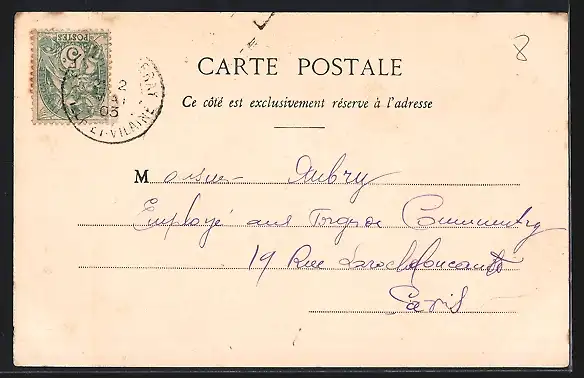 8
POSTES
2
03
ET-VILAINE
CARTE POSTALE
Ce côté est exclusivement réserve à l'adresse
Monsieur Aubry
Employé aux Forges de Commentry
19 Rue Larochefoucauld
Paris